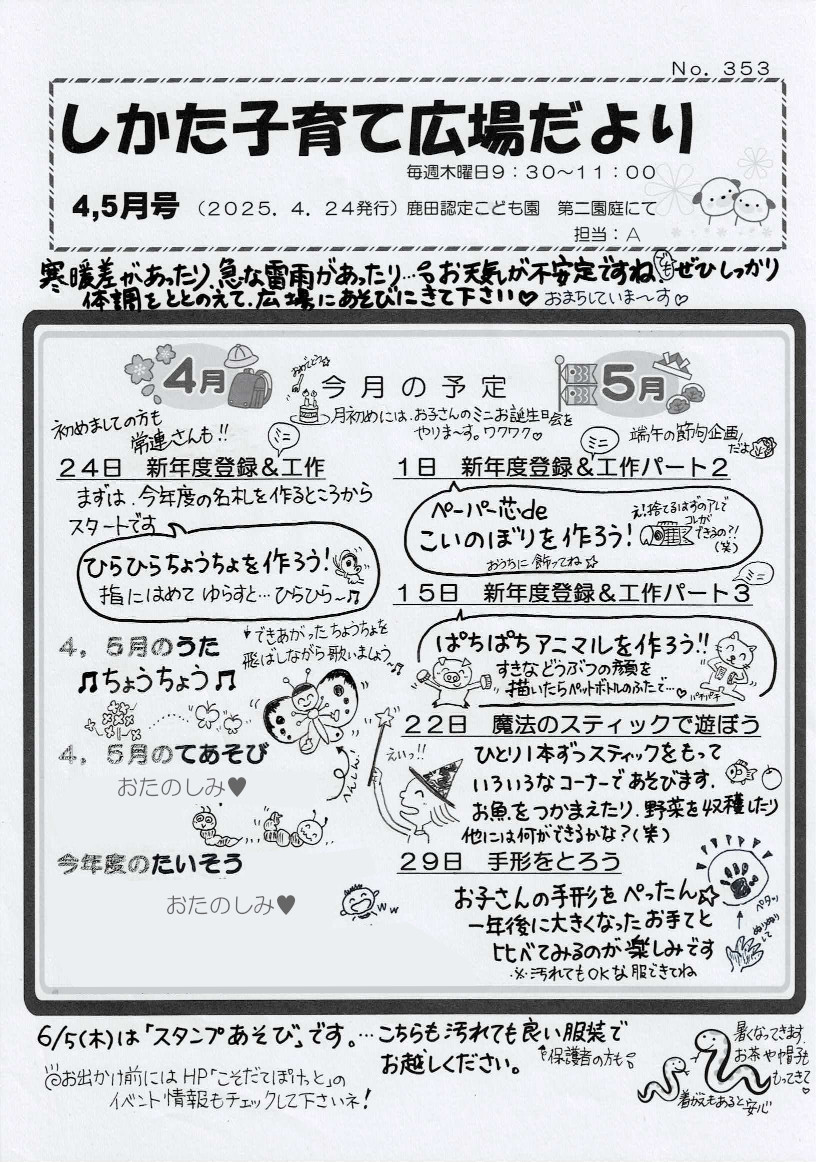 No. 353
しかた子育て広場だより
毎週木曜日9：30～11：00
4,5月号 （2025．4．24発行）鹿田認定こども園 第二園庭にて
担当：A
寒暖差があったり、急な雷雨があったり…お天気が不安定ですね。でもぜひしっかり
体調をととのえて、広場にあそびにきて下さい♡ おまちしていま～す♡
4月
おめでとう☆
今月の予定
5月
月初めには、お子さんのミニお誕生日会を
やりま～す。ワクワク♡
初めましての方も
常連さんも!!
ミニ
24日 新年度登録＆工作
まずは、今年度の名札を作るところから
スタートです
ひらひらちょうちょを作ろう!
指にはめて ゆらすと…ひらひら～♫
4，5月のうた
♫ちょうちょう♫
できあがったちょうちょを
飛ばしながら歌いましょう♪
4，5月のてあそび
おたのしみ♥
へんしん!
今年度のたいそう
おたのしみ♥
ww
端午の節句企画
だよ
ミニ
1日 新年度登録＆工作パート2
ペーパー芯de
こいのぼりを作ろう!
おうちに飾ってね☆
え!捨てるはずのアレで
コレが
できるの?!
(笑)
ミニ
15日 新年度登録＆工作パート3
ぱちぱちアニマルを作ろう!!
すきなどうぶつの顔を
描いたらペットボトルのふたで…♡
パチパチ
22日 魔法のスティックで遊ぼう
えいっ!!
ひとり1本ずつスティックをもって
いろいろなコーナーであそびます。
お魚をつかまえたり、野菜を収穫したり
他には何ができるかな?(笑)
29日 手形をとろう
お子さんの手形をぺったん☆
一年後に大きくなったお手てと
比べてみるのが楽しみです
※汚れてもOKな服できてね
ペタッ
ぬりぬり
して
6/5(木)は「スタンプあそび」です。…こちらも汚れても良い服装で
お越しください。
保護者の方も
◎お出かけ前にはHP「こそだてぽけっと」の
イベント情報もチェックして下さいネ!
暑くなってきます
お茶や帽子も
もってきて
♡
着がえもあると安心